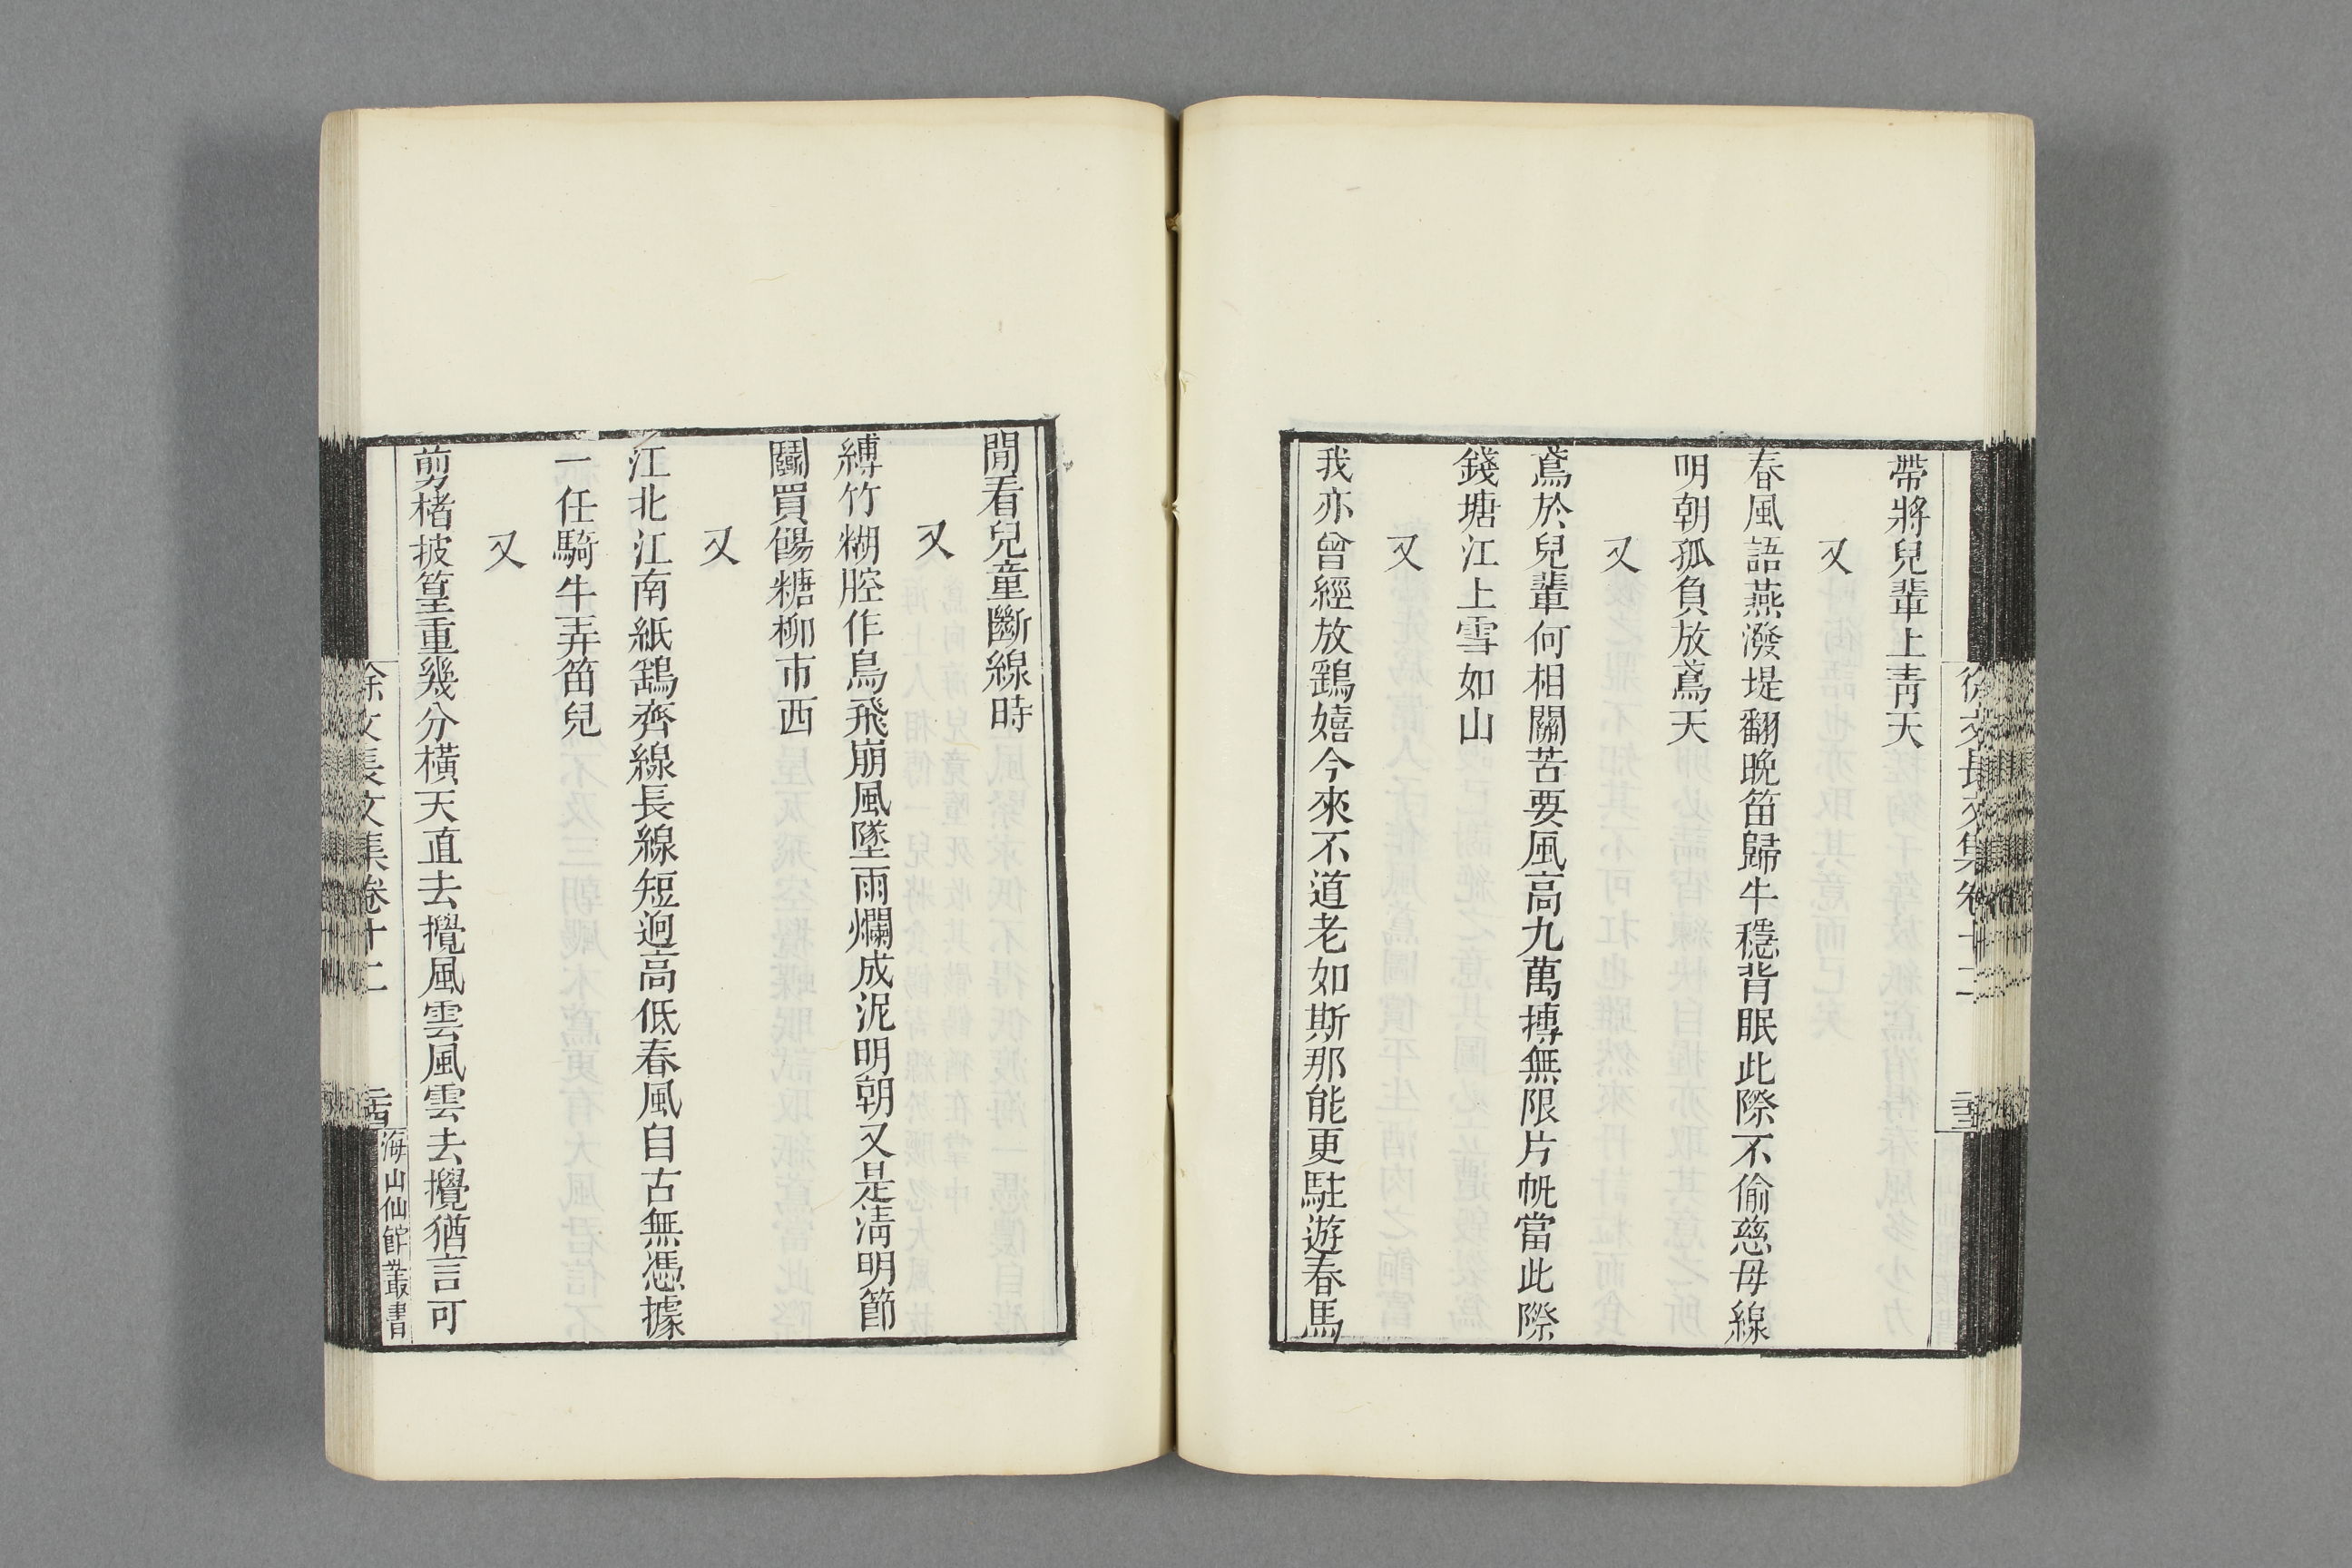 帶將兒輩上青天
又
春風語燕潑堤翻晚笛歸牛穩背眠此際不偷慈母線
明朝孤負放鳶天
又
鳶於兒輩何相關苦要風高九萬摶無限片帆當此際
錢塘江上雪如山
又
我亦曾經放鷂嬉今來不道老如斯那能更駐遊春馬
閒看兒童斷線時
又
縛竹糊腔作鳥飛崩風墜雨爛成泥明朝又是淸明節
鬭買餳糖柳市西
又
江北江南紙鷂齊線長線短迥高低春風自古無憑據
一任騎牛弄笛兒
又
剪楮披篁重幾分橫天直去攪風雲風雲去攪猶言可
徐文長文集卷十二
海山仙館叢書